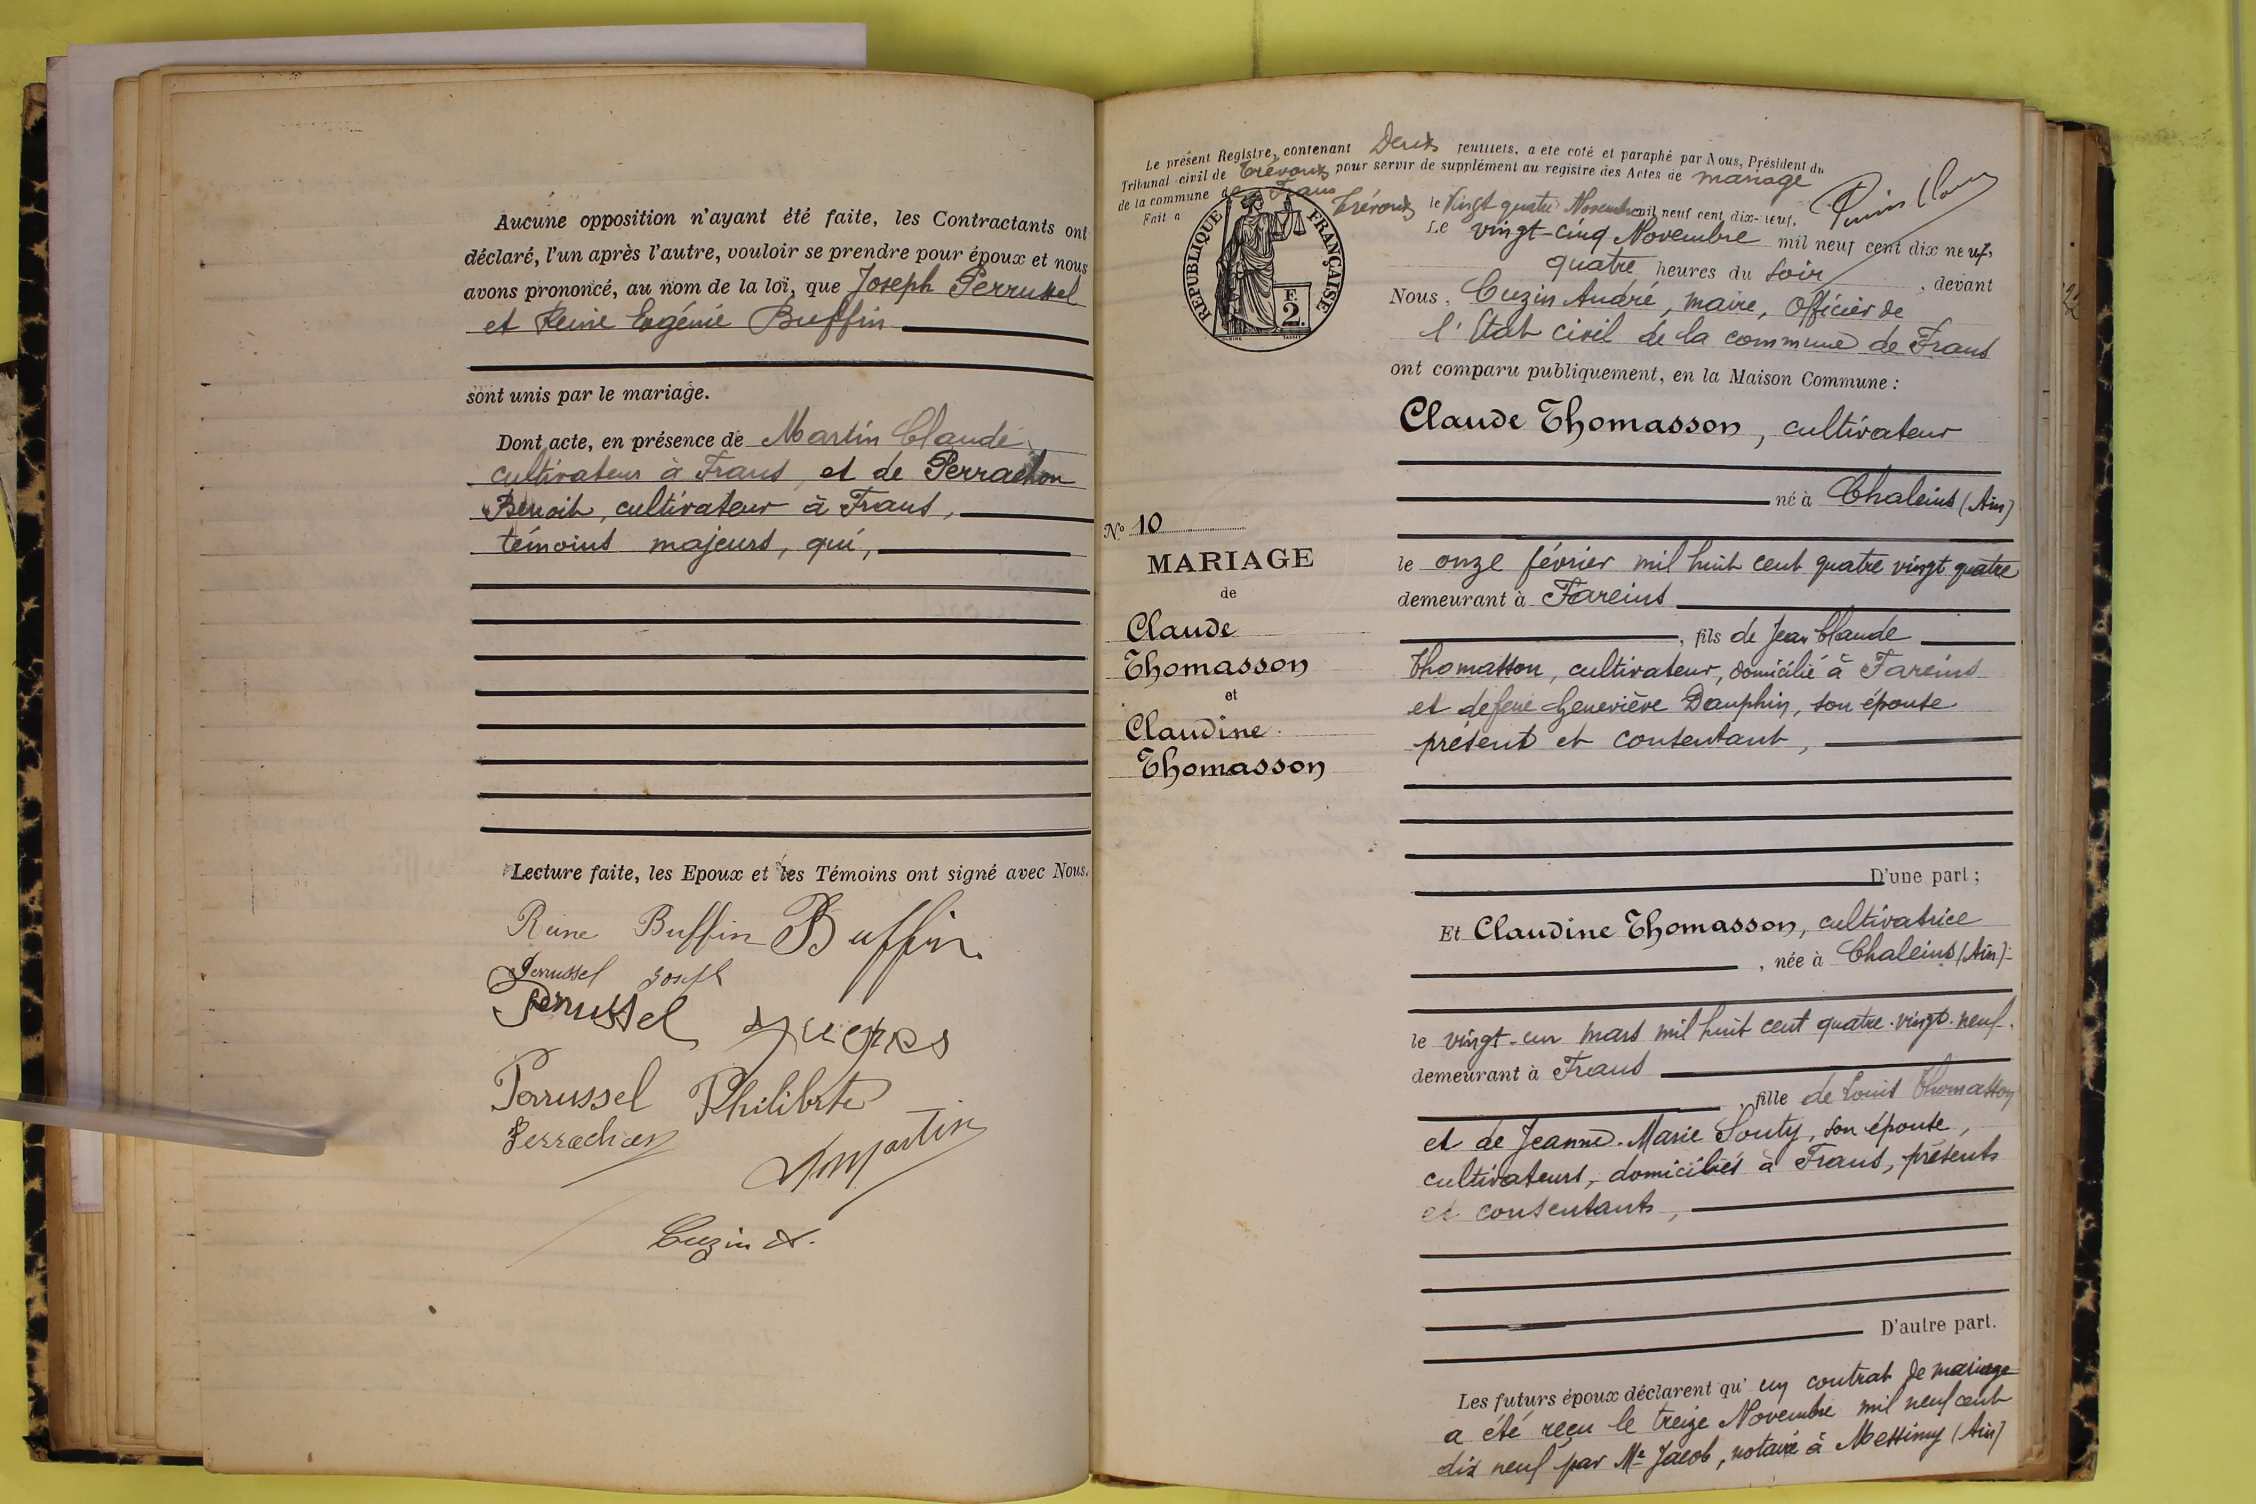 Aucune opposition n'ayant été faite, les Contractants ont
déclaré, l'un après l'autre, vouloir se prendre pour époux et nous
avons prononcé, au nom de la loi, que Joseph Perrussel
et Reine Eugénie Buffin
sont unis par le mariage.
Dont acte, en présence de Martin Claude
cultivateur à Frans, et de Perrachon
Benoit, cultivateur à Frans,
témoins majeurs, qui,
Lecture faite, les Epoux et les Témoins ont signé avec Nous.
Reine Buffin Buffin
Perrussel Joseph
Perrussel
Perrussel Philiberte
Perrachon
Martin
Cuzin A.
Le présent Registre, contenant Deux feuillets, a été coté et paraphé par Nous, Président du
Tribunal civil de Trévoux pour servir de supplément au registre des Actes de mariage
de la commune de Frans
Fait à Trévoux le Vingt quatre Novembre mil neuf cent dix-neuf.
RÉPUBLIQUE FRANÇAISE
F.
2.
Le vingt-cinq Novembre mil neuf cent dix neuf,
quatre heures du soir, devant
Nous, Cuzin André, maire, Officier de
l'Etat civil de la commune de Frans
ont comparu publiquement, en la Maison Commune :
Claude Thomasson, cultivateur
né à Chaleins (Ain)
le onze février mil huit cent quatre vingt quatre
demeurant à Fareins
, fils de Jean Claude
Thomasson, cultivateur, domicilié à Fareins
et de feue Geneviève Dauphin, son épouse
présent et consentant,
D'une part ;
Nº 10
MARIAGE
de
Claude
Thomasson
et
Claudine
Thomasson
Et Claudine Thomasson, cultivatrice
, née à Chaleins (Ain)
le vingt-un mars mil huit cent quatre-vingt-neuf.
demeurant à Frans
, fille de Louis Thomasson
et de Jeanne-Marie Souty, son épouse,
cultivateurs, domiciliés à Frans, présents
et consentants,
D'autre part.
Les futurs époux déclarent qu'un contrat de mariage
a été reçu le treize Novembre mil neuf cent
dix neuf par Me Jacob, notaire à Messimy (Ain)